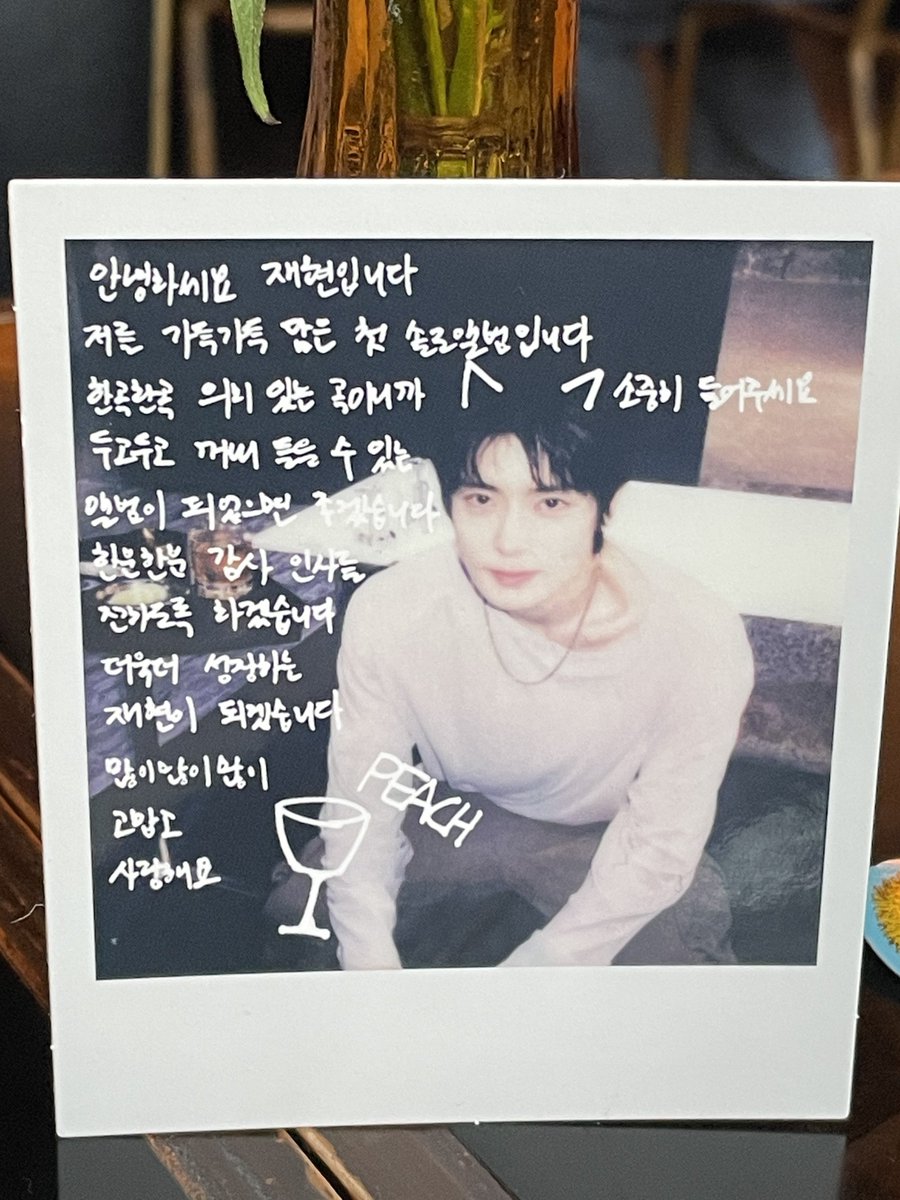 안녕하세요 재현입니다
저를 가득가득 담은 첫 솔로앨범입니다
한곡한곡 의미 있는 곡이니까 소중히 들어주세요
두고두고 꺼내 들을 수 있는
앨범이 되었으면 좋겠습니다
한분한분 감사 인사를
전하도록 하겠습니다
더욱더 성장하는
재현이 되겠습니다
많이많이많이
고맙고
사랑해요
PEACH